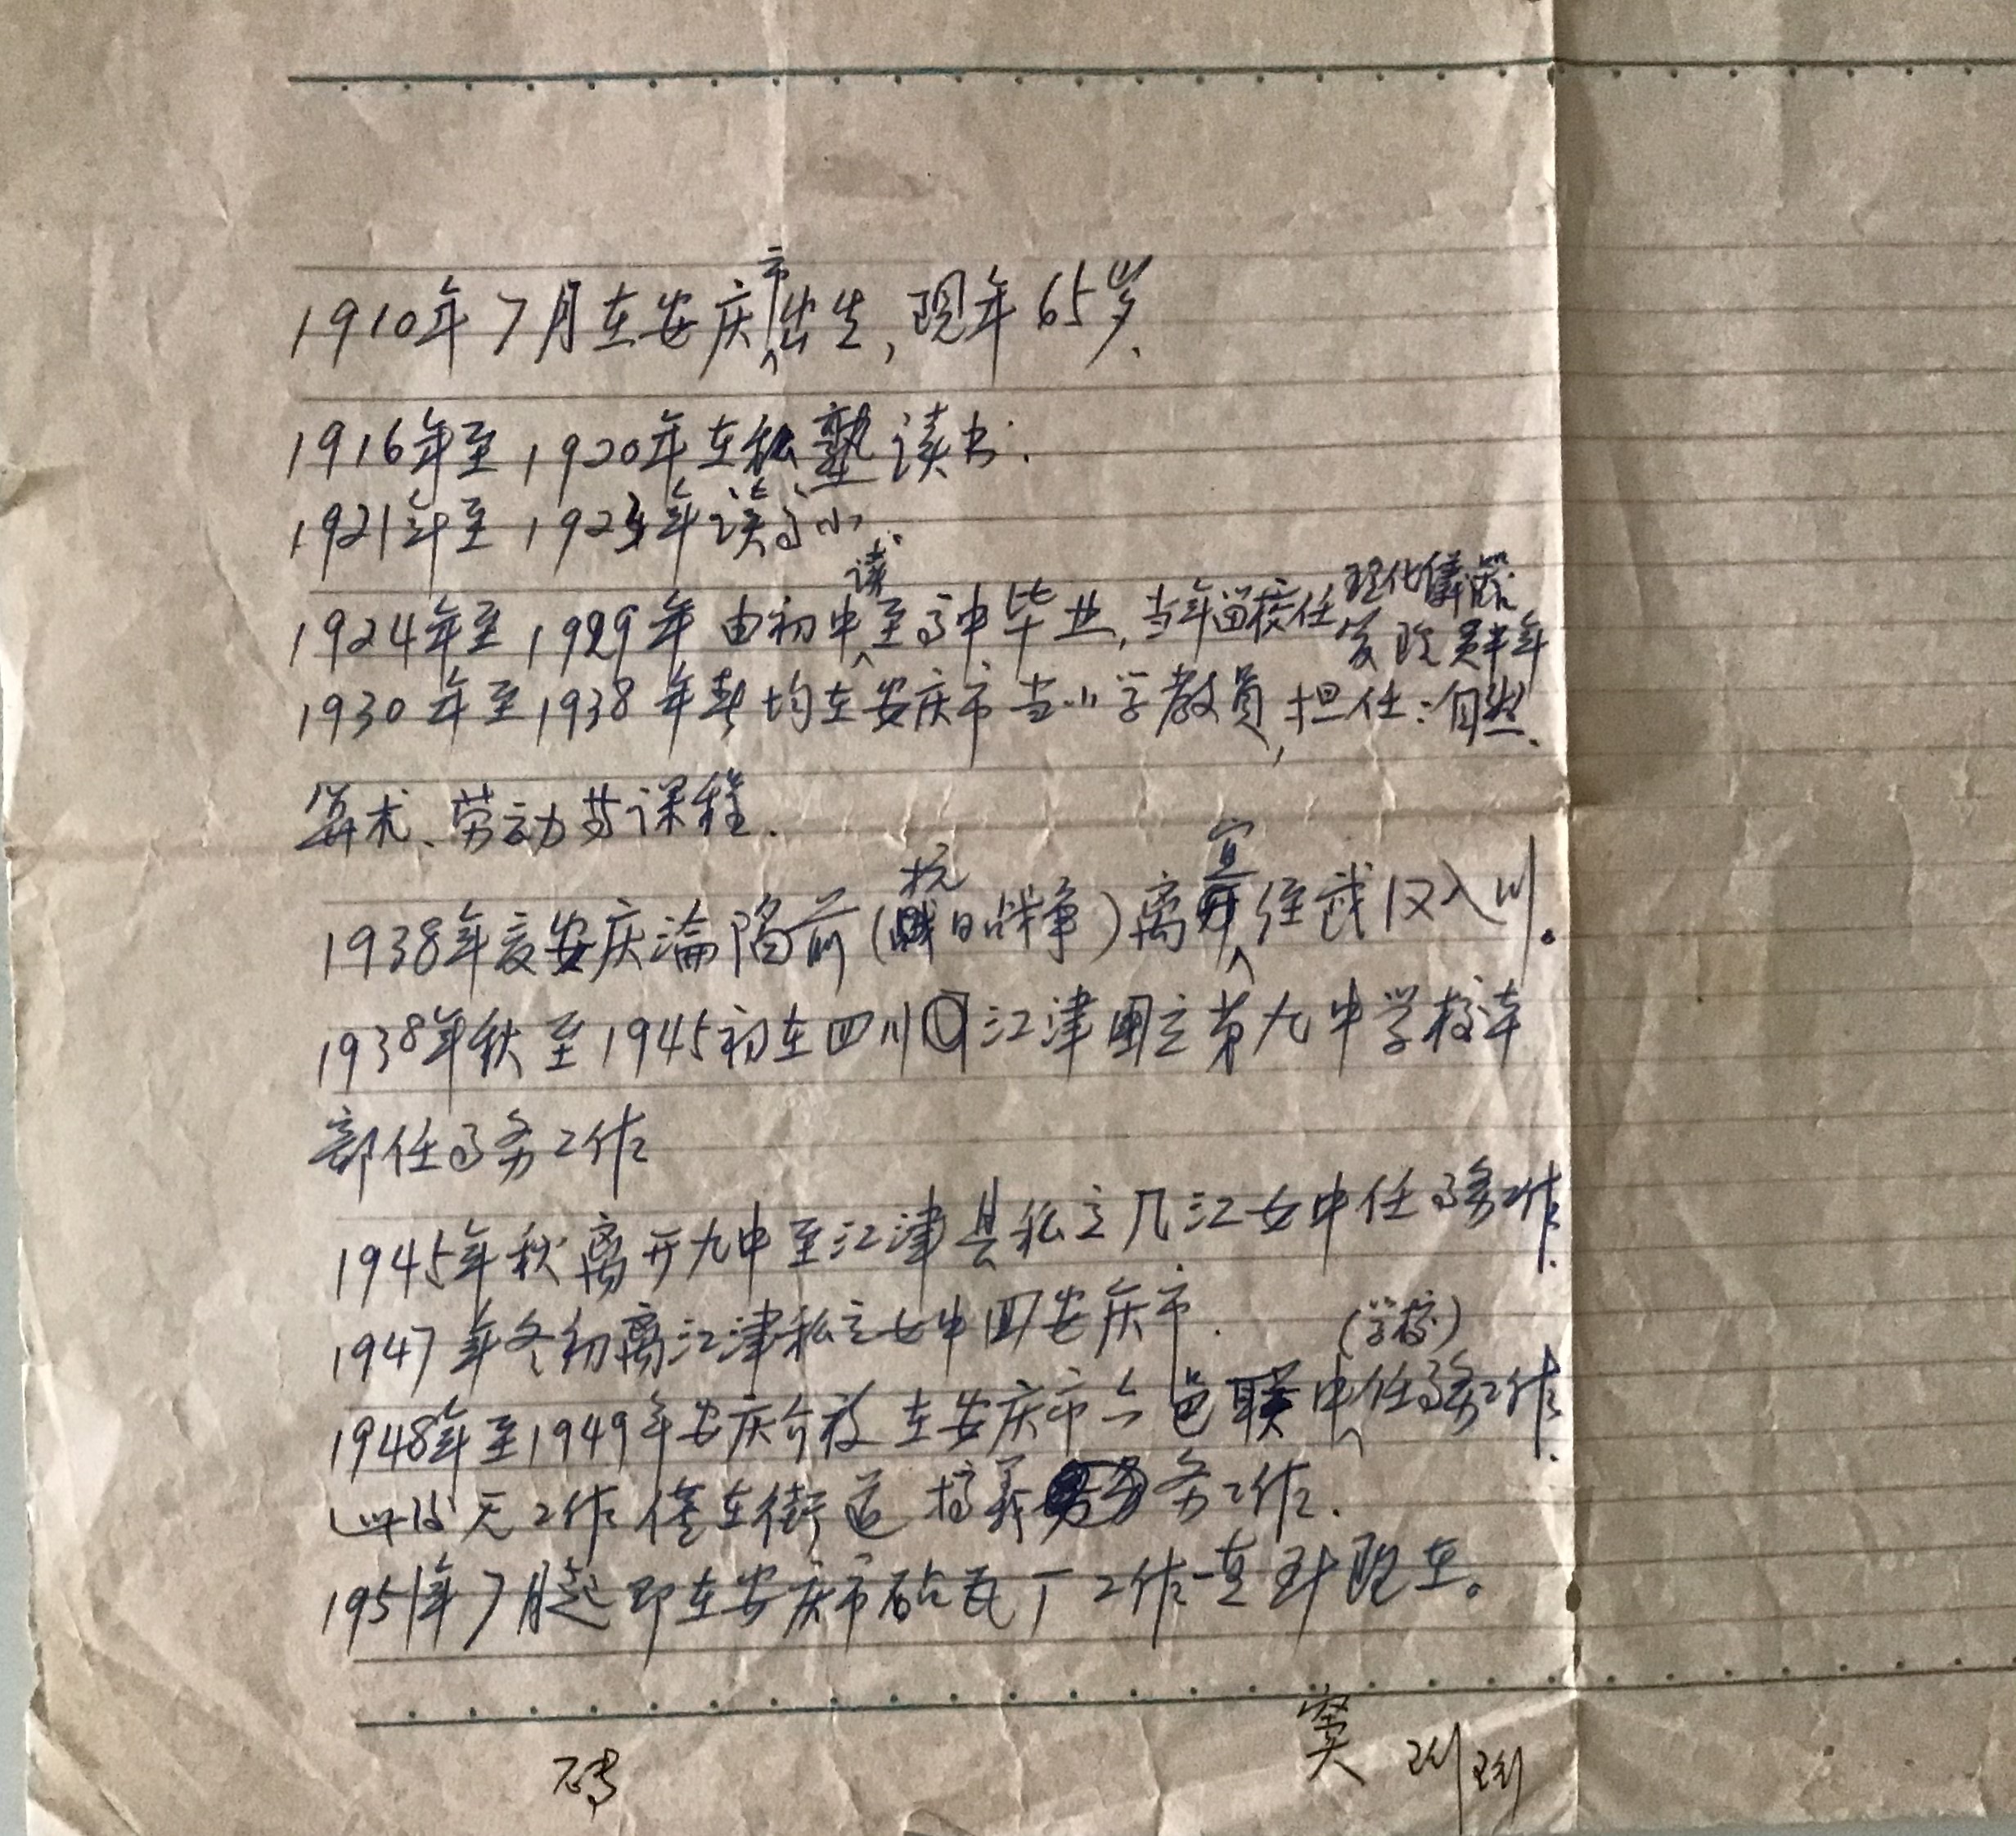 1910年7月在安庆市出生，现年65岁、
1916年至1920年在私塾读书.
1921年至1923年读高小.
1924年至1929年由初中读至高中毕业，当年留校任理化仪器管理员半年
1930年至1938年春均在安庆市当小学教员，担任：自然、
算术、劳动等课程.
1938年夏安庆淪陷前（抗日战争）离宜经武汉入川。
1938年秋至1945初在四川江津国立第九中学校本
部任事务工作
1945年秋离开九中至江津县私立几江女中任事务工作.
1947年冬初离江津私立女中回安庆市.
1948年至1949年安庆介放在安庆市六邑联中(学校)任事务工作.
以后无工作 仅在街道搞義务工作.
1951年7月起即在安庆市砖瓦厂工作一直到现在。
砖